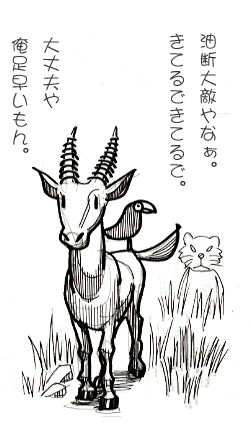 油断大敵やなぁ。
きてるできてるで。
大丈夫や
俺足早いもん。